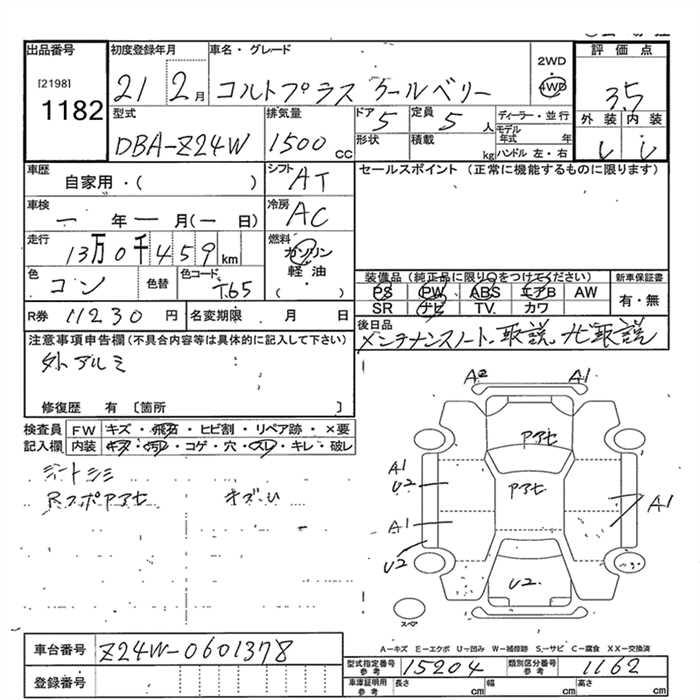 出品番号
[2198]
1182
初度登録年月
21 2月
車名・グレード
コルトプラス クールベリー
2WD
4WD
評価点
3.5
外装 内装
型式
DBA-Z24W
排気量
1500cc
ドア
5
形状
定員
5人
積載
kg
ディーラー・並行
モデル年式 年
ハンドル 左・右
車歴
自家用・( )
車検
一年一月(一日)
走行
13万0千459km
色
コン
色替
色コード
T65
シフト
AT
冷房
AC
燃料
ガソリン
軽油
( )
セールスポイント (正常に機能するものに限ります)
装備品 (純正品に限り○をつけてください)
PS PW ABS エアB AW
SR ナビ TV カワ
新車保証書
有・無
R券 11230円
名変期限 月 日
後日品
メンテナンスノート、取説、ナビ取説
注意事項申告欄(不具合内容等は具体的に記入して下さい)
外アルミ
修復歴 有 〔箇所 〕
検査員記入欄
FW キズ・飛石・ヒビ割・リペア跡・×要
内装 キズ・汚れ・コゲ・穴・スレ・キレ・破レ
シートシミ
Rスポアアセ キズU
A2 A1
アアセ
A1
U2
アアセ
A1
A1
U2
U2
スマ
A－キズ E－エクボ U－凹み W－補修跡 S－サビ C－腐食 XX－交換済
車台番号 Z24W-0601378
登録番号
型式指定番号 参考 15204
類別区分番号 参考 1162
車庫証明用 参考 長さ cm 幅 cm 高さ cm